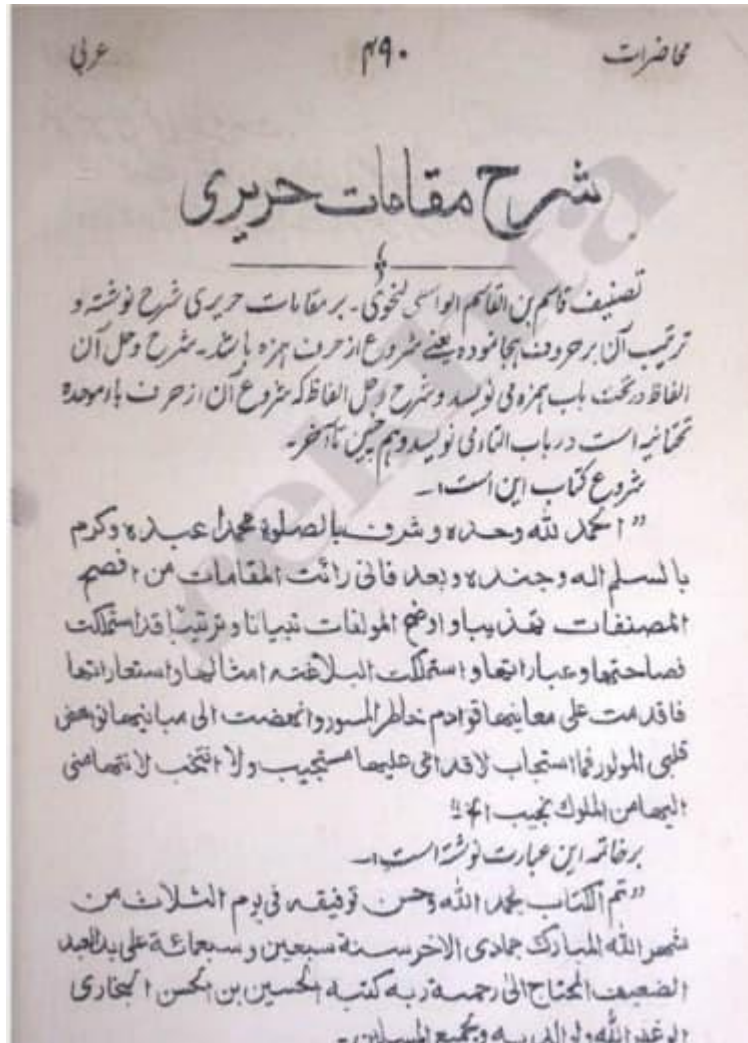 محاضرات ۴۹۰ عربی
شرح مقامات حریری
تصنیف قاسم بن القاسم الواسطی نحوی۔ بر مقامات حریری شرح نوشتہ و
ترتیب آن بر حروف ہجا نمودہ یعنے شروع از حرف ہمزہ باشد۔ شرح و حل آن
الفاظ در تحت باب ہمزہ می نویسد و شرح و حل الفاظ کہ شروع آن از حرف باء موحدہ
تحتانیہ است در باب الباء می نویسد و ہم چنین تا آخر۔
شروع کتاب این است:۔
”الحمد لله وحده وشرف بالصلوة محمدا عبده وكرم
بالسلم اله وجنده وبعد فانى رائت المقامات من افصح
المصنفات تهذيبا واوضح المولفات تبيانا وترتيبا قد استملكت
فصاحتها وعباراتها واستملكت البلاغته امثالها واستعاراتها
فاقدمت على معاينها قوادم خاطر المسور وانهضت الى مبانيها نواهض
قلبى المولور فما استجاب لاقدامى عليها مستجيب ولا انتخب لانتهامنى
اليها من الملوك نجيب الخ“
بر خاتمہ این عبارت نوشتہ است:۔
”تم الكتاب بحمد الله وحسن توفيقه فى يوم الثلاث من
شهر الله المبارك جمادى الاخر سنة سبعين وسبعمائة على يد العبد
الضعيف المحتاج الى رحمة ربه كتبه الحسين بن الحسن البخارى
غفر الله ولوالديه ولجميع المسلمين۔